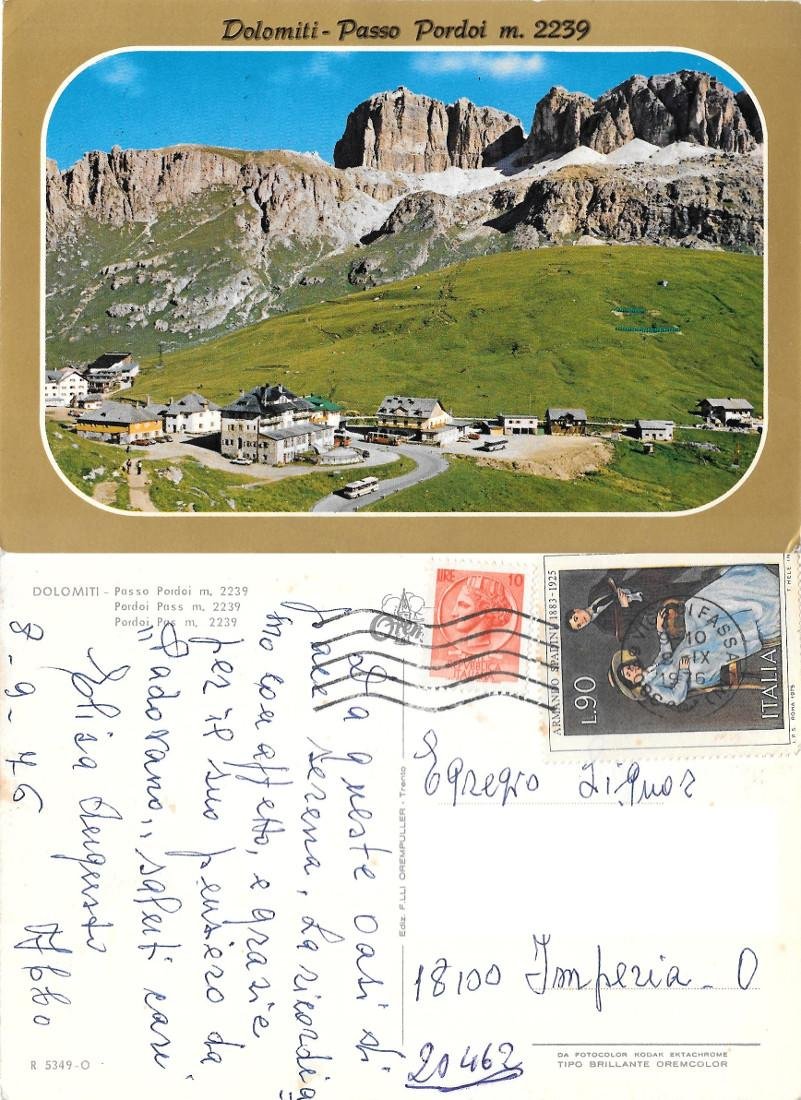 Dolomiti - Passo Pordoi m. 2239
DOLOMITI - Passo Pordoi m. 2239
Pordoi Pass m. 2239
Pordoi Pas m. 2239
Da queste oasi di
pace serena, la ricordia
mo con affetto, e grazie
per il suo pensiero da
"Padovano,, saluti cari
Elisa Augusto
8-9-76
R 5349-O
Ediz. F.LLI OREMPULLER - Trento
LIRE 10
REPUBBLICA
ITALIANA
ARMANDO SPADINI 1883-1925
L.90
ITALIA
I.P.S. ROMA 1975
9-10
IX
1976
Egregio Signor
18100 Imperia - O
20462
DA FOTOCOLOR KODAK EKTACHROME
TIPO BRILLANTE OREMCOLOR